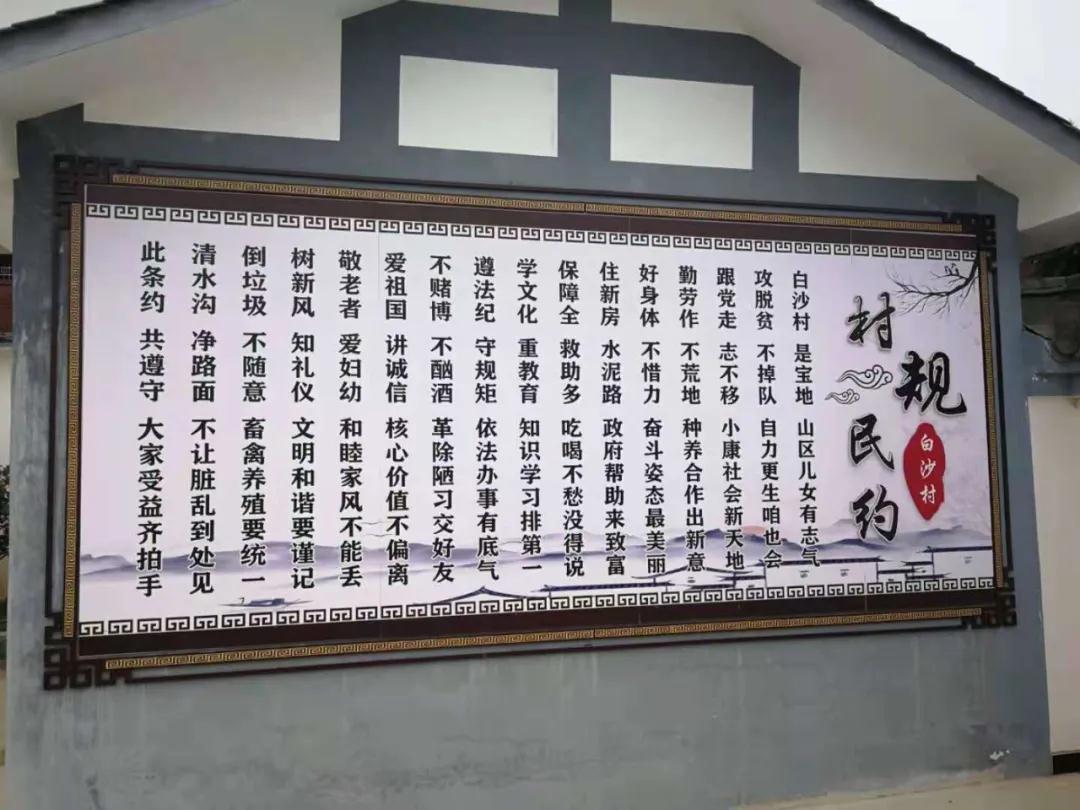 村规民约
白沙村
白沙村 是宝地 山区儿女有志气
攻脱贫 不掉队 自力更生咱也会
跟党走 志不移 小康社会新天地
勤劳作 不荒地 种养合作出新意
好身体 不惜力 奋斗姿态最美丽
住新房 水泥路 政府帮助来致富
保障全 救助多 吃喝不愁没得说
学文化 重教育 知识学习排第一
遵法纪 守规矩 依法办事有底气
不赌博 不酗酒 革除陋习交好友
爱祖国 讲诚信 核心价值不偏离
敬老者 爱妇幼 和睦家风不能丢
树新风 知礼仪 文明和谐要谨记
倒垃圾 不随意 畜禽养殖要统一
清水沟 净路面 不让脏乱到处见
此条约 共遵守 大家受益齐拍手